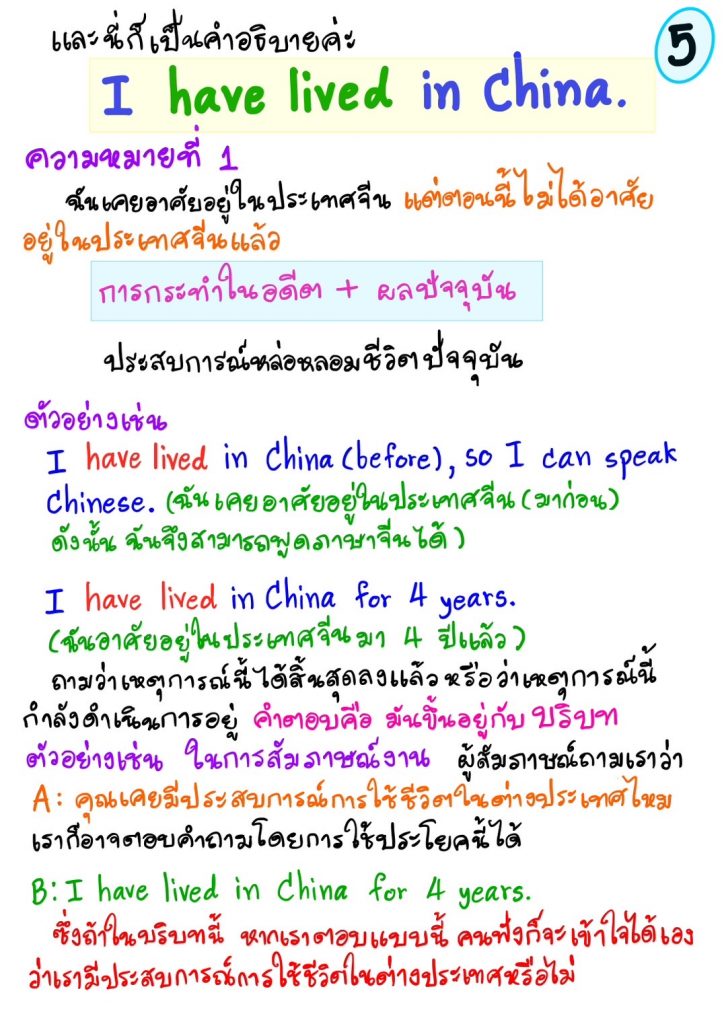 และนี่ก็เป็นคำอธิบายค่ะ
5
I have lived in China.
ความหมายที่ 1
ฉันเคยอาศัยอยู่ในประเทศจีน แต่ตอนนี้ไม่ได้อาศัย
อยู่ในประเทศจีนแล้ว
การกระทำในอดีต + ผลปัจจุบัน
ประสบการณ์หล่อหลอมชีวิตปัจจุบัน
ตัวอย่างเช่น
I have lived in China (before), so I can speak
Chinese. (ฉันเคยอาศัยอยู่ในประเทศจีน (มาก่อน)
ดังนั้น ฉันจึงสามารถพูดภาษาจีนได้)
I have lived in China for 4 years.
(ฉันอาศัยอยู่ในประเทศจีนมา 4 ปีแล้ว)
ถามว่าเหตุการณ์นี้ได้สิ้นสุดลงแล้ว หรือว่าเหตุการณ์นี้
กำลังดำเนินการอยู่ คำตอบคือ มันขึ้นอยู่กับ บริบท
ตัวอย่างเช่น ในการสัมภาษณ์งาน ผู้สัมภาษณ์ถามเราว่า
A: คุณเคยมีประสบการณ์การใช้ชีวิตในต่างประเทศไหม
เราก็อาจตอบคำถามโดยการใช้ประโยคนี้ได้
B: I have lived in China for 4 years.
ซึ่งถ้าในบริบทนี้ หากเราตอบแบบนี้ คนฟังก็จะเข้าใจได้เอง
ว่าเรามีประสบการณ์การใช้ชีวิตในต่างประเทศหรือไม่